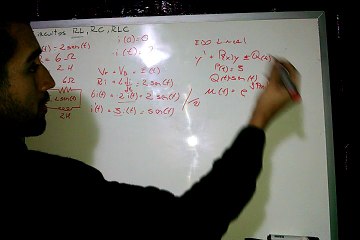 RL, RC, RLC
i(0)=0
(t) = 2 sen(t)
= 6 Ω
2 H
6Ω
2 sen(t)
2H
VR + VL = E(t)
Ri + L di/dt = 2 sen(t)
6i(t) + 2 i'(t) = 2 sen(t)
i'(t) + 3i(t) = sen(t)
EDO Lineal
y' + P(x)y = Q(x)
P(t) = 3
Q(t) = sen(t)
μ(t) = e